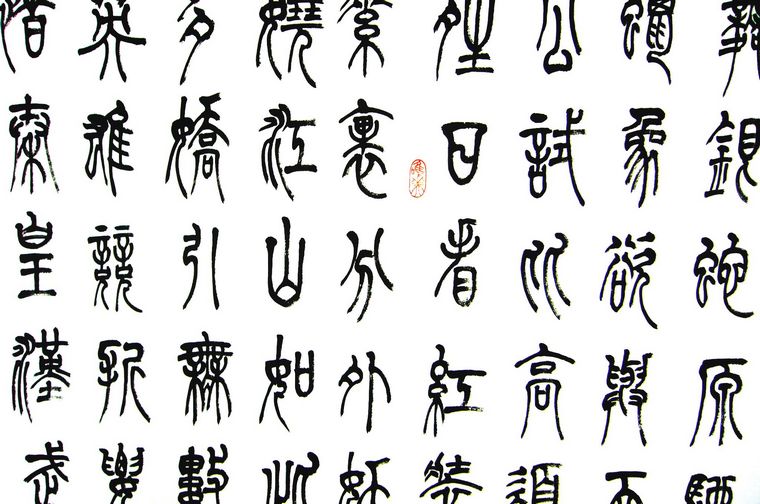 舞銀蛇原馳
蠟象欲與天
公試比高須
晴日看紅裝
素裹分外妖
嬈江山如此
多嬌引無數
英雄競折腰
惜秦皇漢武